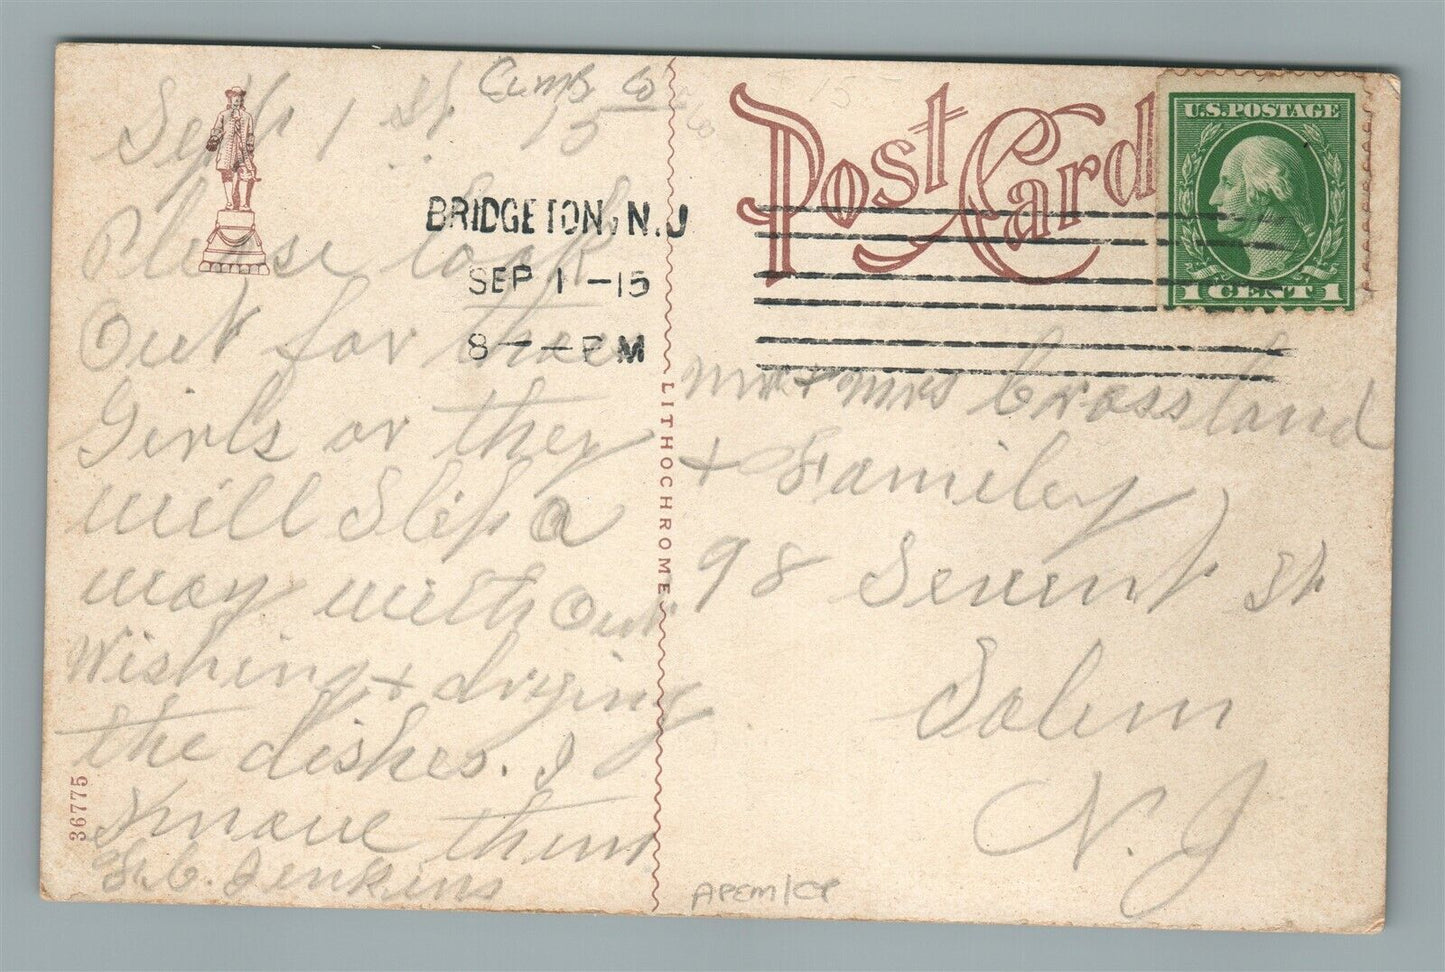 Cumb Co
Sept 1 st 15
Please look
Out for thee
Girls or they
will Slip a
way with Out
Wishing + drying
the dishes. I
Know them
C. Jenkins
36775
BRIDGETON, N.J
SEP 1 -15
8 - PM
LITHOCHROME
Post Card
U.S. POSTAGE
1 CENT 1
Mr + Mrs Crossland
+ Family
98 Seventh St
Salem
N. J
APEM/CP